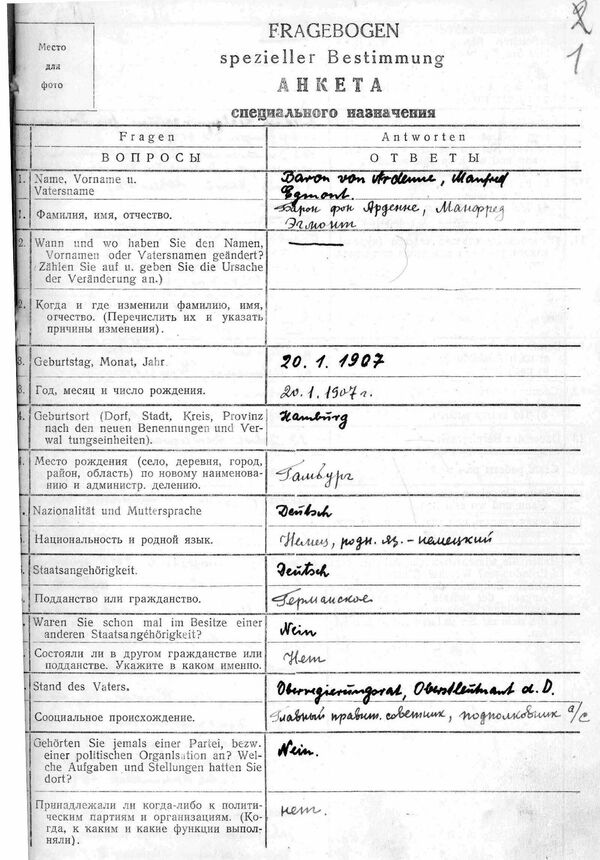 2
1
Место
для
фото
FRAGEBOGEN
spezieller Bestimmung
АНКЕТА
специального назначения
Fragen
Antworten
ВОПРОСЫ
ОТВЕТЫ
1. Name, Vorname u.
Vatersname
Baron von Ardenne, Manfred
Egmont.
1. Фамилия, имя, отчество.
Барон фон Арденне, Манфред
Эгмонт
2. Wann und wo haben Sie den Namen,
Vornamen oder Vatersnamen geändert?
Zählen Sie auf u. geben Sie die Ursache
der Veränderung an.)
2. Когда и где изменили фамилию, имя,
отчество. (Перечислить их и указать
причины изменения).
3. Geburtstag, Monat, Jahr
20. 1. 1907
3. Год, месяц и число рождения.
20.1.1907 г.
4. Geburtsort (Dorf, Stadt, Kreis, Provinz
nach den neuen Benennungen und Ver-
wal tungseinheiten).
Hamburg
4. Место рождения (село, деревня, город,
район, область) по новому наименова-
нию и администр. делению.
Гамбург
Nazionalität und Muttersprache
Deutsch
Национальность и родной язык.
Немец, родн. яз. - немецкий
Staatsangehörigkeit.
Deutsch
Подданство или гражданство.
Германское
Waren Sie schon mal im Besitze einer
anderen Staatsangéhörigkeit?
Nein
Состояли ли в другом гражданстве или
подданстве. Укажите в каком именно.
Нет
Stand des Vaters.
Oberregierungsrat, Oberstleutnant a. D.
Сооциальное происхождение.
Главный правит. советник, подполковник а/с
Gehörten Sie jemals einer Partei, bezw.
einer politischen Organlsation an? Wel-
che Aufgaben und Stellungen hatten Sie
dort?
Nein.
Принадлежали ли когда-либо к полити-
ческим партиям и организациям. (Ко-
гда, к каким и какие функции выпол-
няли).
нет.